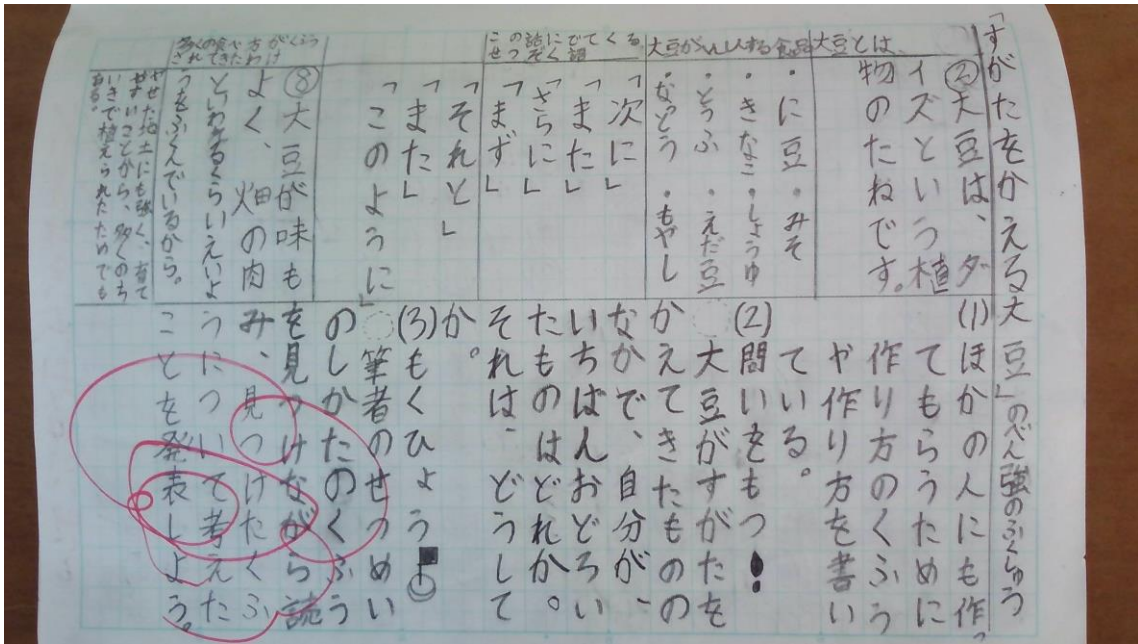 「すがたをかえる大豆」のべん強のふくしゅう
大豆とは
②大豆は、ダ
イズという植
物のたねです。
大豆がへんしんする食品
・に豆・みそ
・きなこ・しょうゆ
・とうふ・えだ豆
・なっとう・もやし
この話にでてくる
せつぞく語
「次に」
「また」
「さらに」
「まず」
「それと」
「また」
「このように」
多くの食べ方がくふう
されてきたわけ
⑧大豆が味も
よく、畑の肉
といわれるくらいえいよ
うをふくんでいるから。
やせた地土にも強く、育て
やすいことから、多くのち
いきで植えられたためでも
ある。
(1)ほかの人にも作っ
てもらうために
作り方のくふう
や作り方を書い
ている。
(2)問いをもつ!
大豆がすがたを
かえてきたものの
なかで、自分が、
いちばんおどろい
たものはどれか。
それは、どうして
か。
(3)もくひょう
筆者のせつめい
のしかたのくふう
を見つけながら読
み、見つけたくふ
うについて考えた
ことを発表しよう。